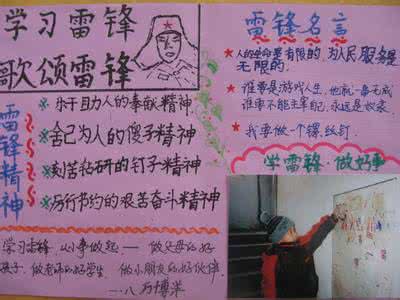 学习雷锋
歌颂雷锋
雷锋精神
※乐于助人的奉献精神
※舍己为人的傻子精神
※刻苦钻研的钉子精神
※厉行节约的艰苦奋斗精神
学习雷锋 从小事做起——做父母的好
孩子 做老师的好学生 做小朋友的好伙伴
一.八 万博米
雷锋名言
★人的生命是有限的,为人民服务是
无限的.
★谁要是游戏人生,他就一事无成
谁要不能主宰自己,永远是奴隶.
★我要做一个螺丝钉
学雷锋 做好事